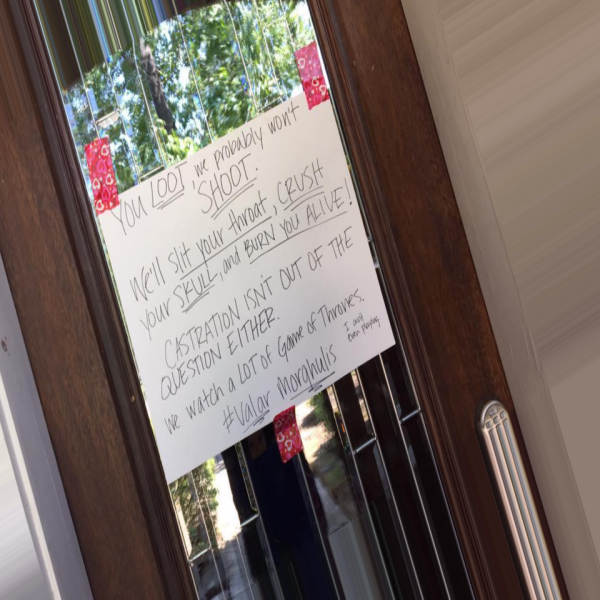 You LOOT, we probably won't
SHOOT.
We'll slit your throat, CRUSH
your SKULL, and BURN YOU ALIVE!
CASTRATION ISN'T OUT OF THE
QUESTION EITHER.
We watch a LOT of Game of Thrones.
#Valar Morghulis
I ain't
even playing.